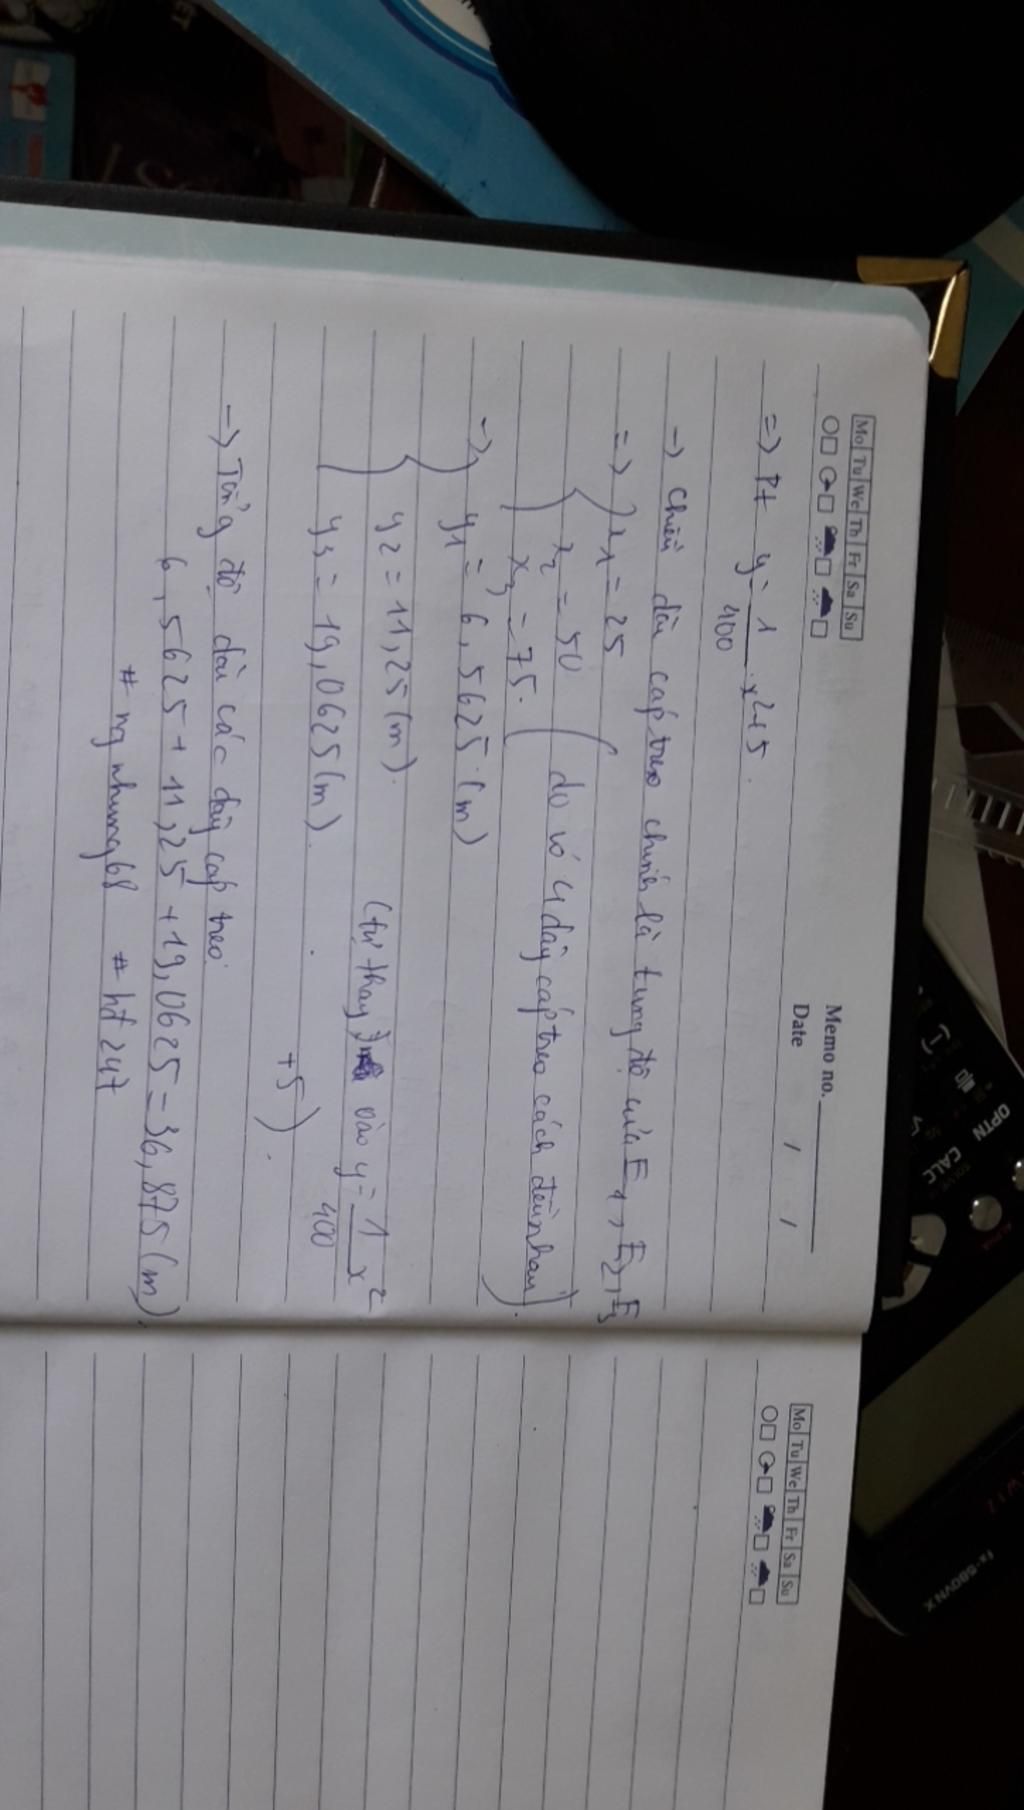 Mo Tu We Th Fr Sa Su
Memo no.
Date / /
=> Pt y = 1/400 . x² + 5 .
-> chiều dài cáp treo chính là tung độ của E1, E2, E3
=> { x1 = 25
x2 = 50 ( do có 4 dây cáp treo cách đều nhau ) .
x3 = 75 .
-> { y1 = 6,5625 (m)
y2 = 11,25 (m) .
(tự thay vào y = 1/400 x²
+5 ) .
y3 = 19,0625 (m) .
-> Tổng độ dài các dây cáp treo:
6,5625 + 11,25 + 19,0625 = 36,875 (m) .
# ng nhung68 # hd 247
Mo Tu We Th Fr Sa Su
OPTN
CALC
ALPHA
fx-580VN X